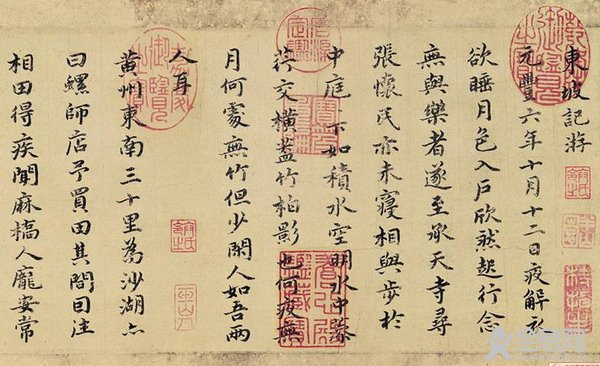 東坡記游
元豐六年十月十二日夜解衣
欲睡月色入戶欣然起行念
無與樂者遂至承天寺尋
張懷民亦未寢相與步於
中庭下如積水空明水中藻
荇交橫蓋竹栢影也何夜無
月何處無竹但少閑人如吾兩
人耳
黃州東南三十里為沙湖亦
曰螺師店予買田其間因往
相田得疾聞麻橋人龐安常